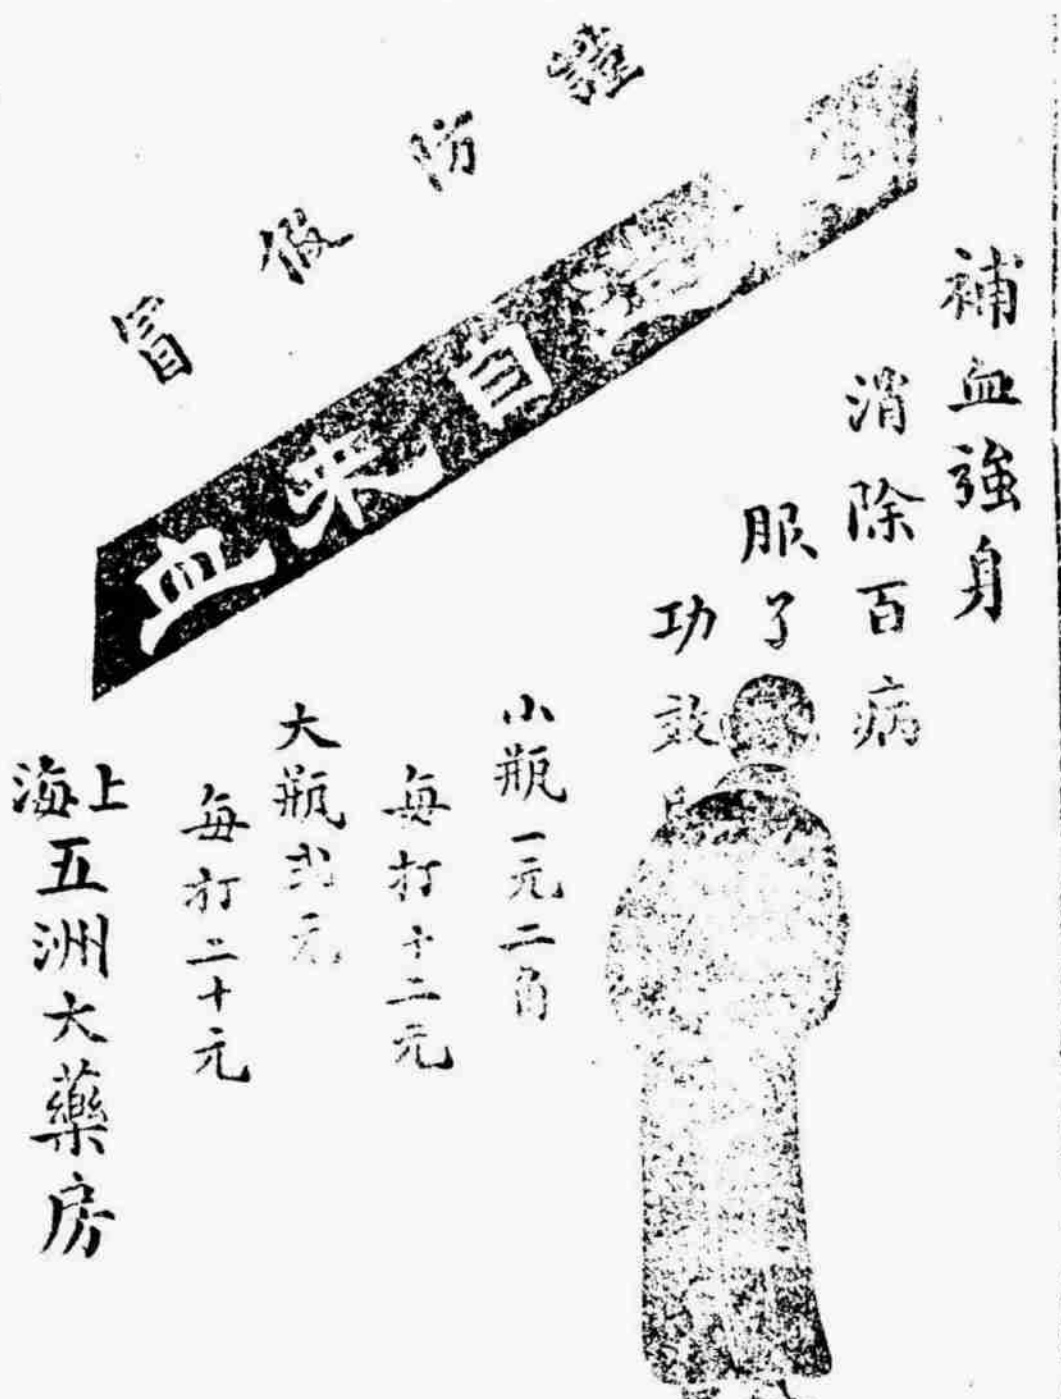 謹防假冒
自來血
補血強身
消除百病
服了
功效
小瓶一元二角
每打十二元
大瓶弍元
每打二十元
上海五洲大藥房